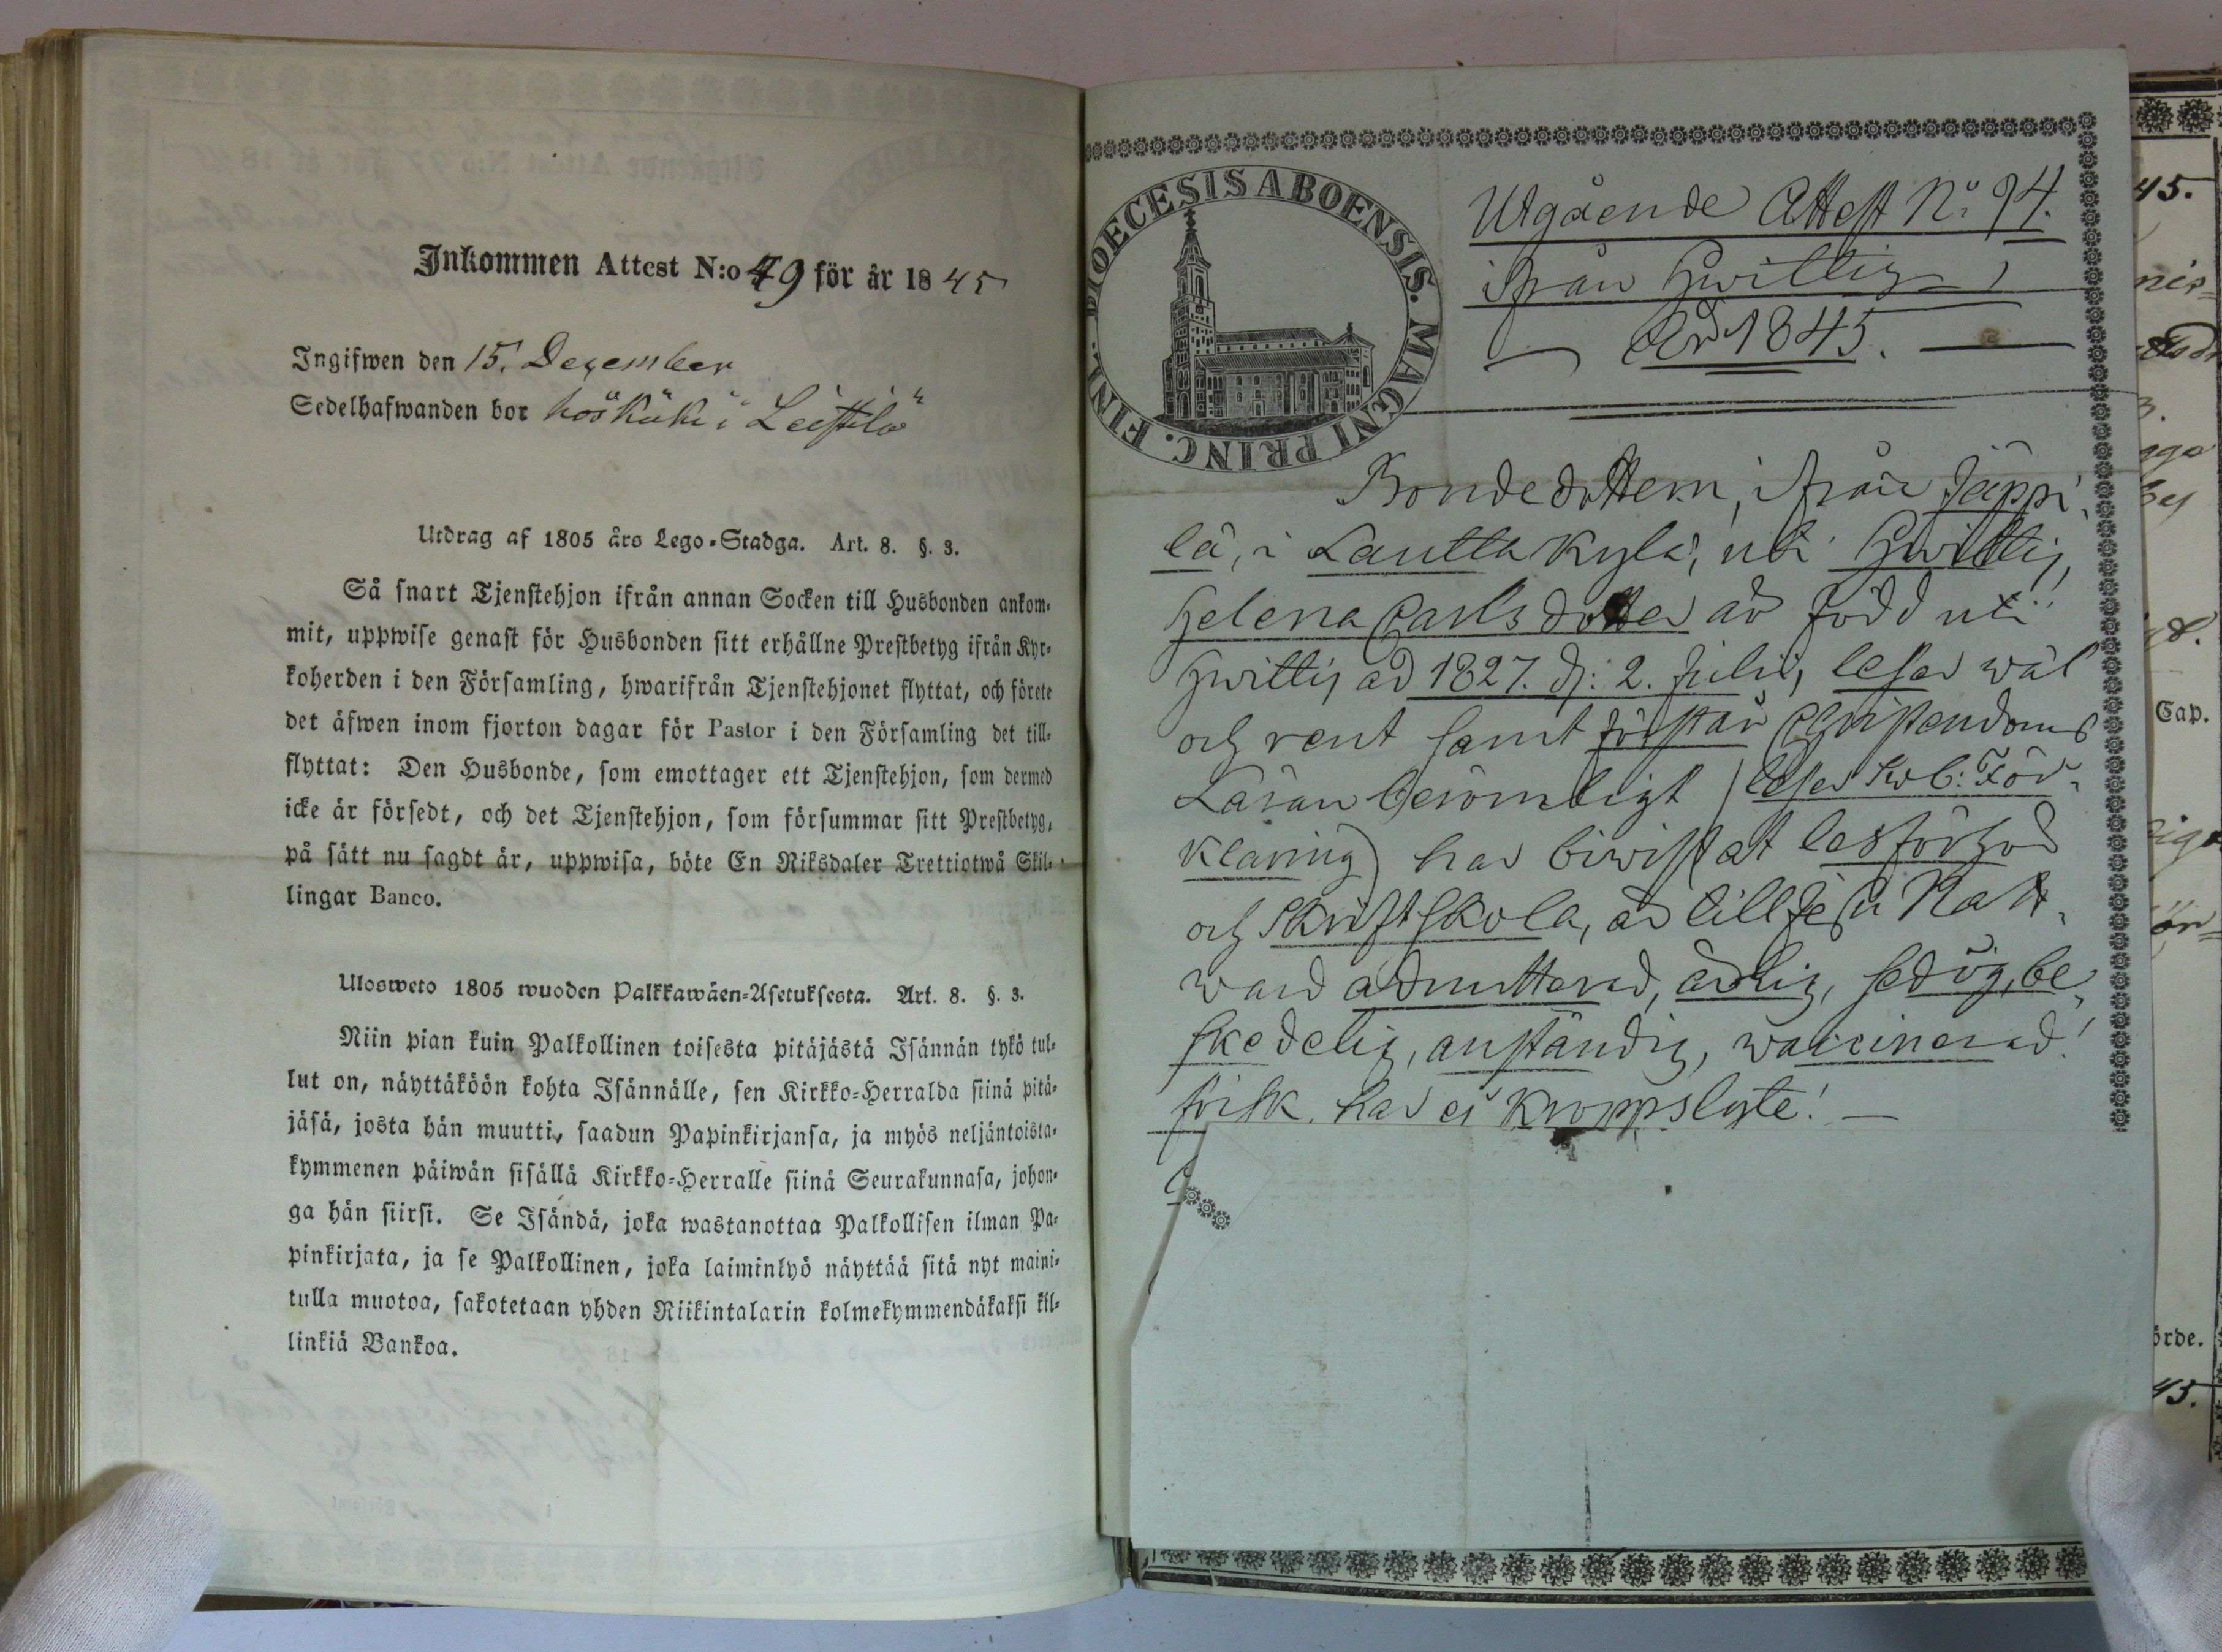 Inkommen Attest N:o 49 för år 1845
Ingifwen den 15. December
Sedelhafwanden bor hos Kuki i Leistilä
Utdrag af 1805 års Lego-Stadga. Art. 8. §. 3.
Så snart Tjenstehjon ifrån annan Socken till Husbonden ankom-
mit, uppwise genast för Husbonden sitt erhållne Prestbetyg ifrån Kyr-
koherden i den Församling, hwarifrån Tjenstehjonet flyttat, och förete
det äfwen inom fjorton dagar för Pastor i den Församling det till-
flyttat: Den Husbonde, som emottager ett Tjenstehjon, som dermed
icke är försedt, och det Tjenstehjon, som försummar sitt Prestbetyg,
på sätt nu sagdt är, uppwisa, böte En Riksdaler Trettiotwå Skil-
lingar Banco.
Ulosweto 1805 wuoden Palkkawäen-Asetuksesta. Art. 8. §. 3.
Niin pian kuin Palkollinen toisesta pitäjästä Isännän tykö tul-
lut on, näyttäköön kohta Isännälle, sen Kirkko-Herralda siinä pitä-
jäsä, josta hän muutti, saadun Papinkirjansa, ja myös neljäntoista-
kymmenen päiwän sisällä Kirkko-Herralle siinä Seurakunnasa, johon-
ga hän siirsi. Se Isändä, joka wastanottaa Palkollisen ilman Pa-
pinkirjata, ja se Palkollinen, joka laiminlyö näyttää sitä nyt maini-
tulla muotoa, sakotetaan yhden Riikintalarin kolmekymmendäkaksi kil-
linkiä Bankoa.
DIOECESIS ABOENSIS. MAGNI PRINC. FINL.
Utgående Attest No 94.
ifrån Hwittis,
År 1845.
Bondedottern, ifrån Jäppi-
lä, i Lauttakylä, uti Hwittis,
Helena Carlsdotter är född uti
Hwittis år 1827. d: 2. Julii, läser wäl
och rent samt förstår Christendoms
Läran berömligt (läser Swb: För-
klaring) har biwist at läsförhör
och Skriftskola, är till Jesu Natt-
ward admitterad, ärlig, sedig, be-
skedelig, anständig, waccinerad!
frisk, har ej kroppslyte! —
45.
Cap.
örde.
45.